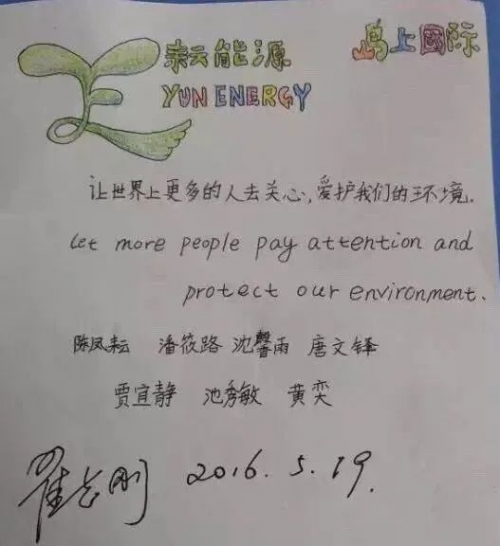 耘能源 島上國际
YUN ENERGY
让世界上更多的人去关心,爱护我们的环境.
Let more people pay attention and
protect our environment.
陈凤耘 潘筱路 沈馨雨 唐文铎
贾宜静 池秀敏 黄奕
翟志刚 2016.5.19.